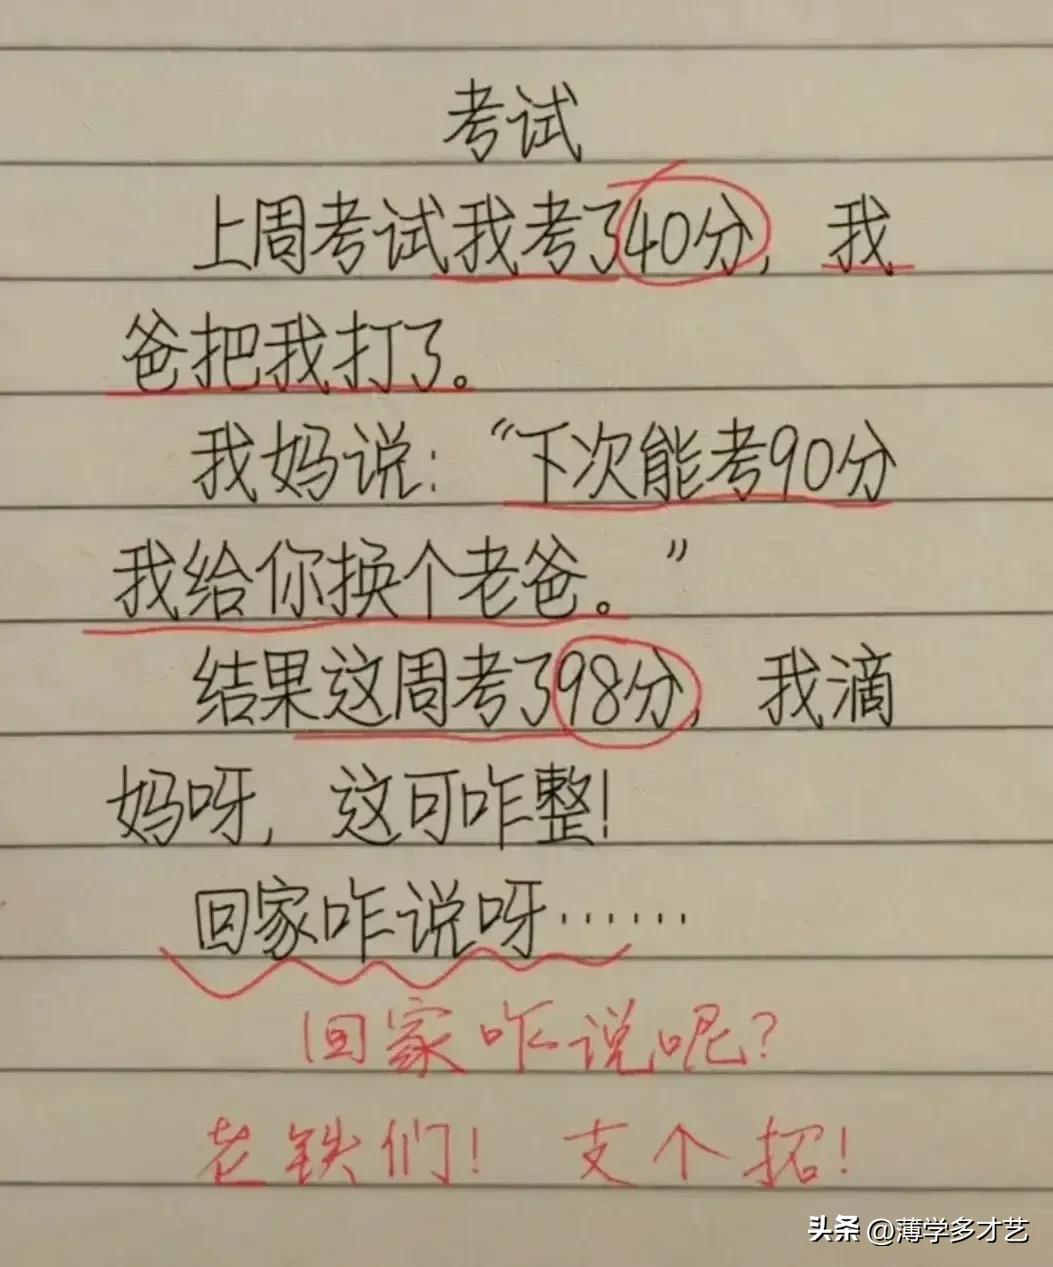 考试
上周考试我考了40分，我
爸把我打了。
我妈说：“下次能考90分
我给你换个老爸。”
结果这周考了98分，我滴
妈呀，这可咋整！
回家咋说呀……
回家咋说呢？
老铁们！支个招！
头条 @薄学多才艺